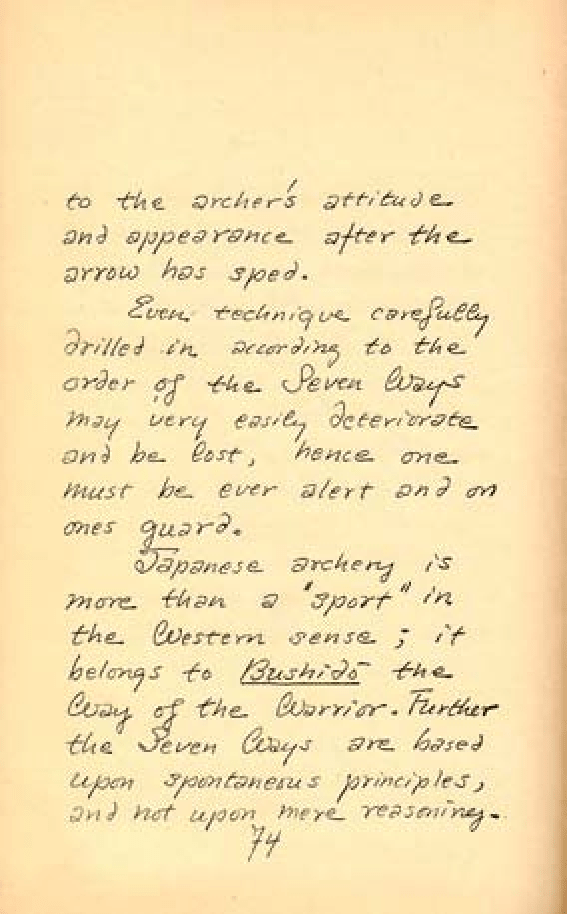 to the archer's attitude
and appearance after the
arrow has sped.
Even technique carefully
drilled in according to the
order of the Seven Ways
may very easily deteriorate
and be lost, hence one
must be ever alert and on
ones guard.
Japanese archery is
more than a "sport" in
the Western sense; it
belongs to Bushidō the
Way of the Warrior. Further
the Seven Ways are based
upon spontaneous principles,
and not upon mere reasoning.
74